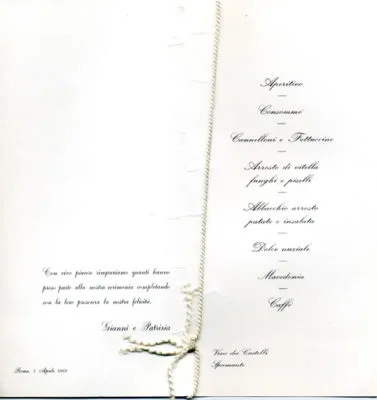 Con vivo piacere ringraziamo quanti hanno
preso parte alla nostra cerimonia completando
con la loro presenza la nostra felicità.
Gianni e Patrizia
Roma, Aprile
Aperitivo
Consommé
Cannelloni e Fettuccine
Arrosto di vitella
funghi e piselli
Abbacchio arrosto
patate e insalata
Dolce nuziale
Macedonia
Caffè
Vino dei Castelli
Spumante